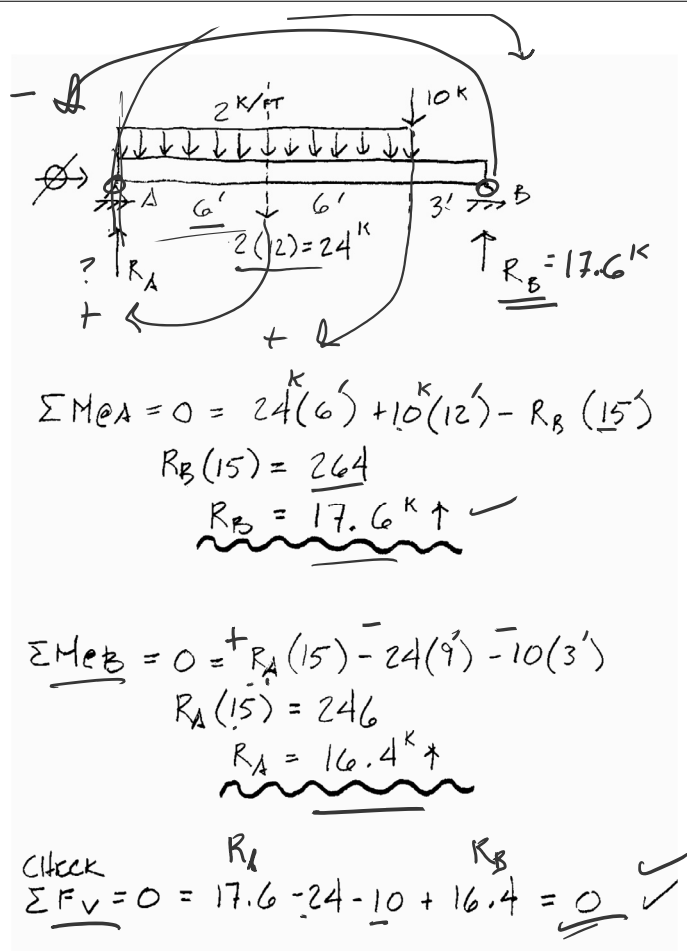 2 K/FT
10 K
A
6'
6'
3'
B
2(12) = 24 K
? R_A
R_B = 17.6 K
+
+
-
ΣM@A = 0 = 24 K (6') + 10 K (12') - R_B (15')
R_B (15) = 264
R_B = 17.6 K ↑ ✓
ΣM@B = 0 = + R_A (15) - 24(9') - 10(3')
R_A (15) = 246
R_A = 16.4 K ↑
R_A R_B
CHECK
ΣF_V = 0 = 17.6 - 24 - 10 + 16.4 = 0 ✓ ✓